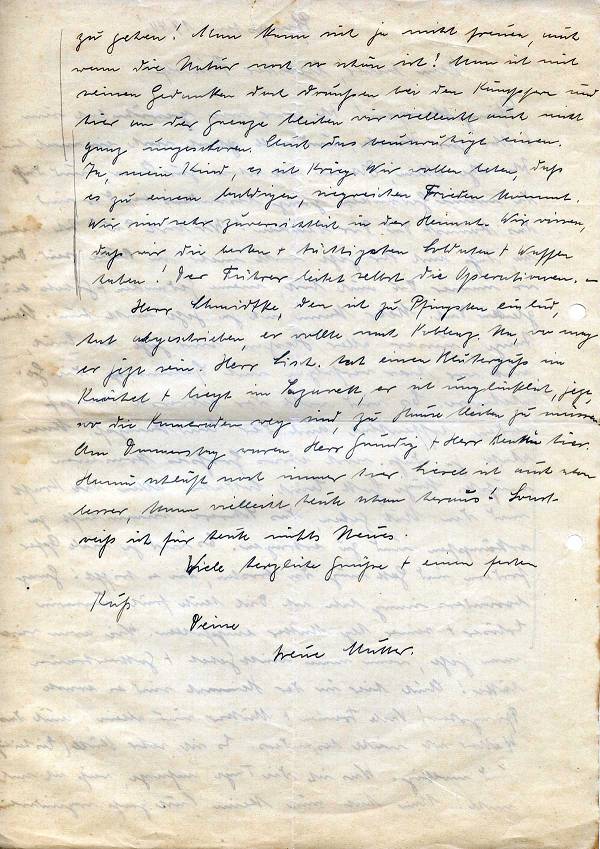 zu gehen! Man kann sich ja nicht freuen, auch
wenn die Natur noch so schön ist! Man ist mit
seinen Gedanken dort draußen bei den Kämpfern und
hier an der Grenze bleiben wir vielleicht auch nicht
ganz ungeschoren. Auch das beunruhigt einen.
Ja, mein Kind, es ist Krieg. Wir wollen beten, daß
es zu einem baldigen, siegreichen Frieden kommt.
Wir sind sehr zuversichtlich in der Heimat. Wir wissen,
daß wir die besten + tüchtigsten Soldaten + Waffen
haben! Der Führer leitet selbst die Operationen. –
Herr Schmidtke, den ich zu Pfingsten einlud,
hat abgeschrieben, er wollte nach Koblenz. Na, wo mag
er jetzt sein. Herr List. hat einen Bluterguß im
+ liegt im Lazarett, er ist unglücklich, jetzt,
wo die Kameraden weg sind, zu Hause bleiben zu müssen.
Am Donnerstag waren Herr Gründig + Herr hier.
schläft noch immer hier. Liesel ist auch schon
besser, kann vielleicht heute schon heraus! Sonst
weiß ich für heute nichts Neues.
Viele herzliche Grüße + einen festen
Kuß
Deine
treue Mutter.